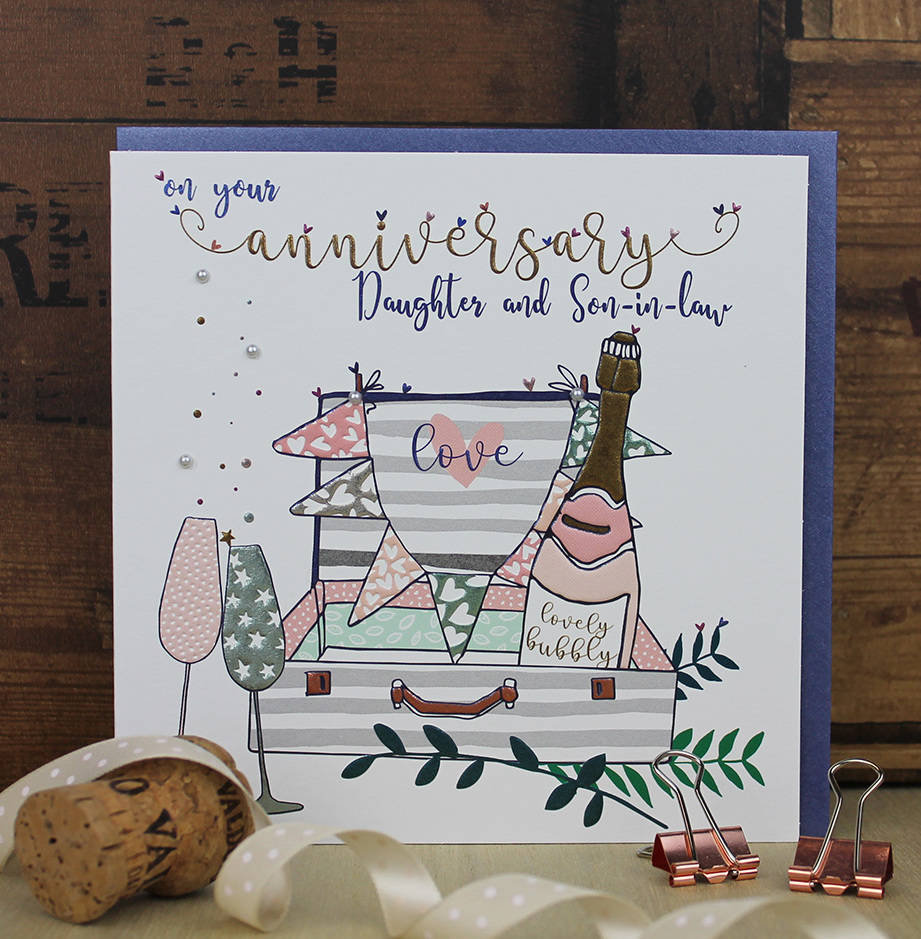 on your
anniversary
Daughter and Son-in-law
love
lovely
bubbly